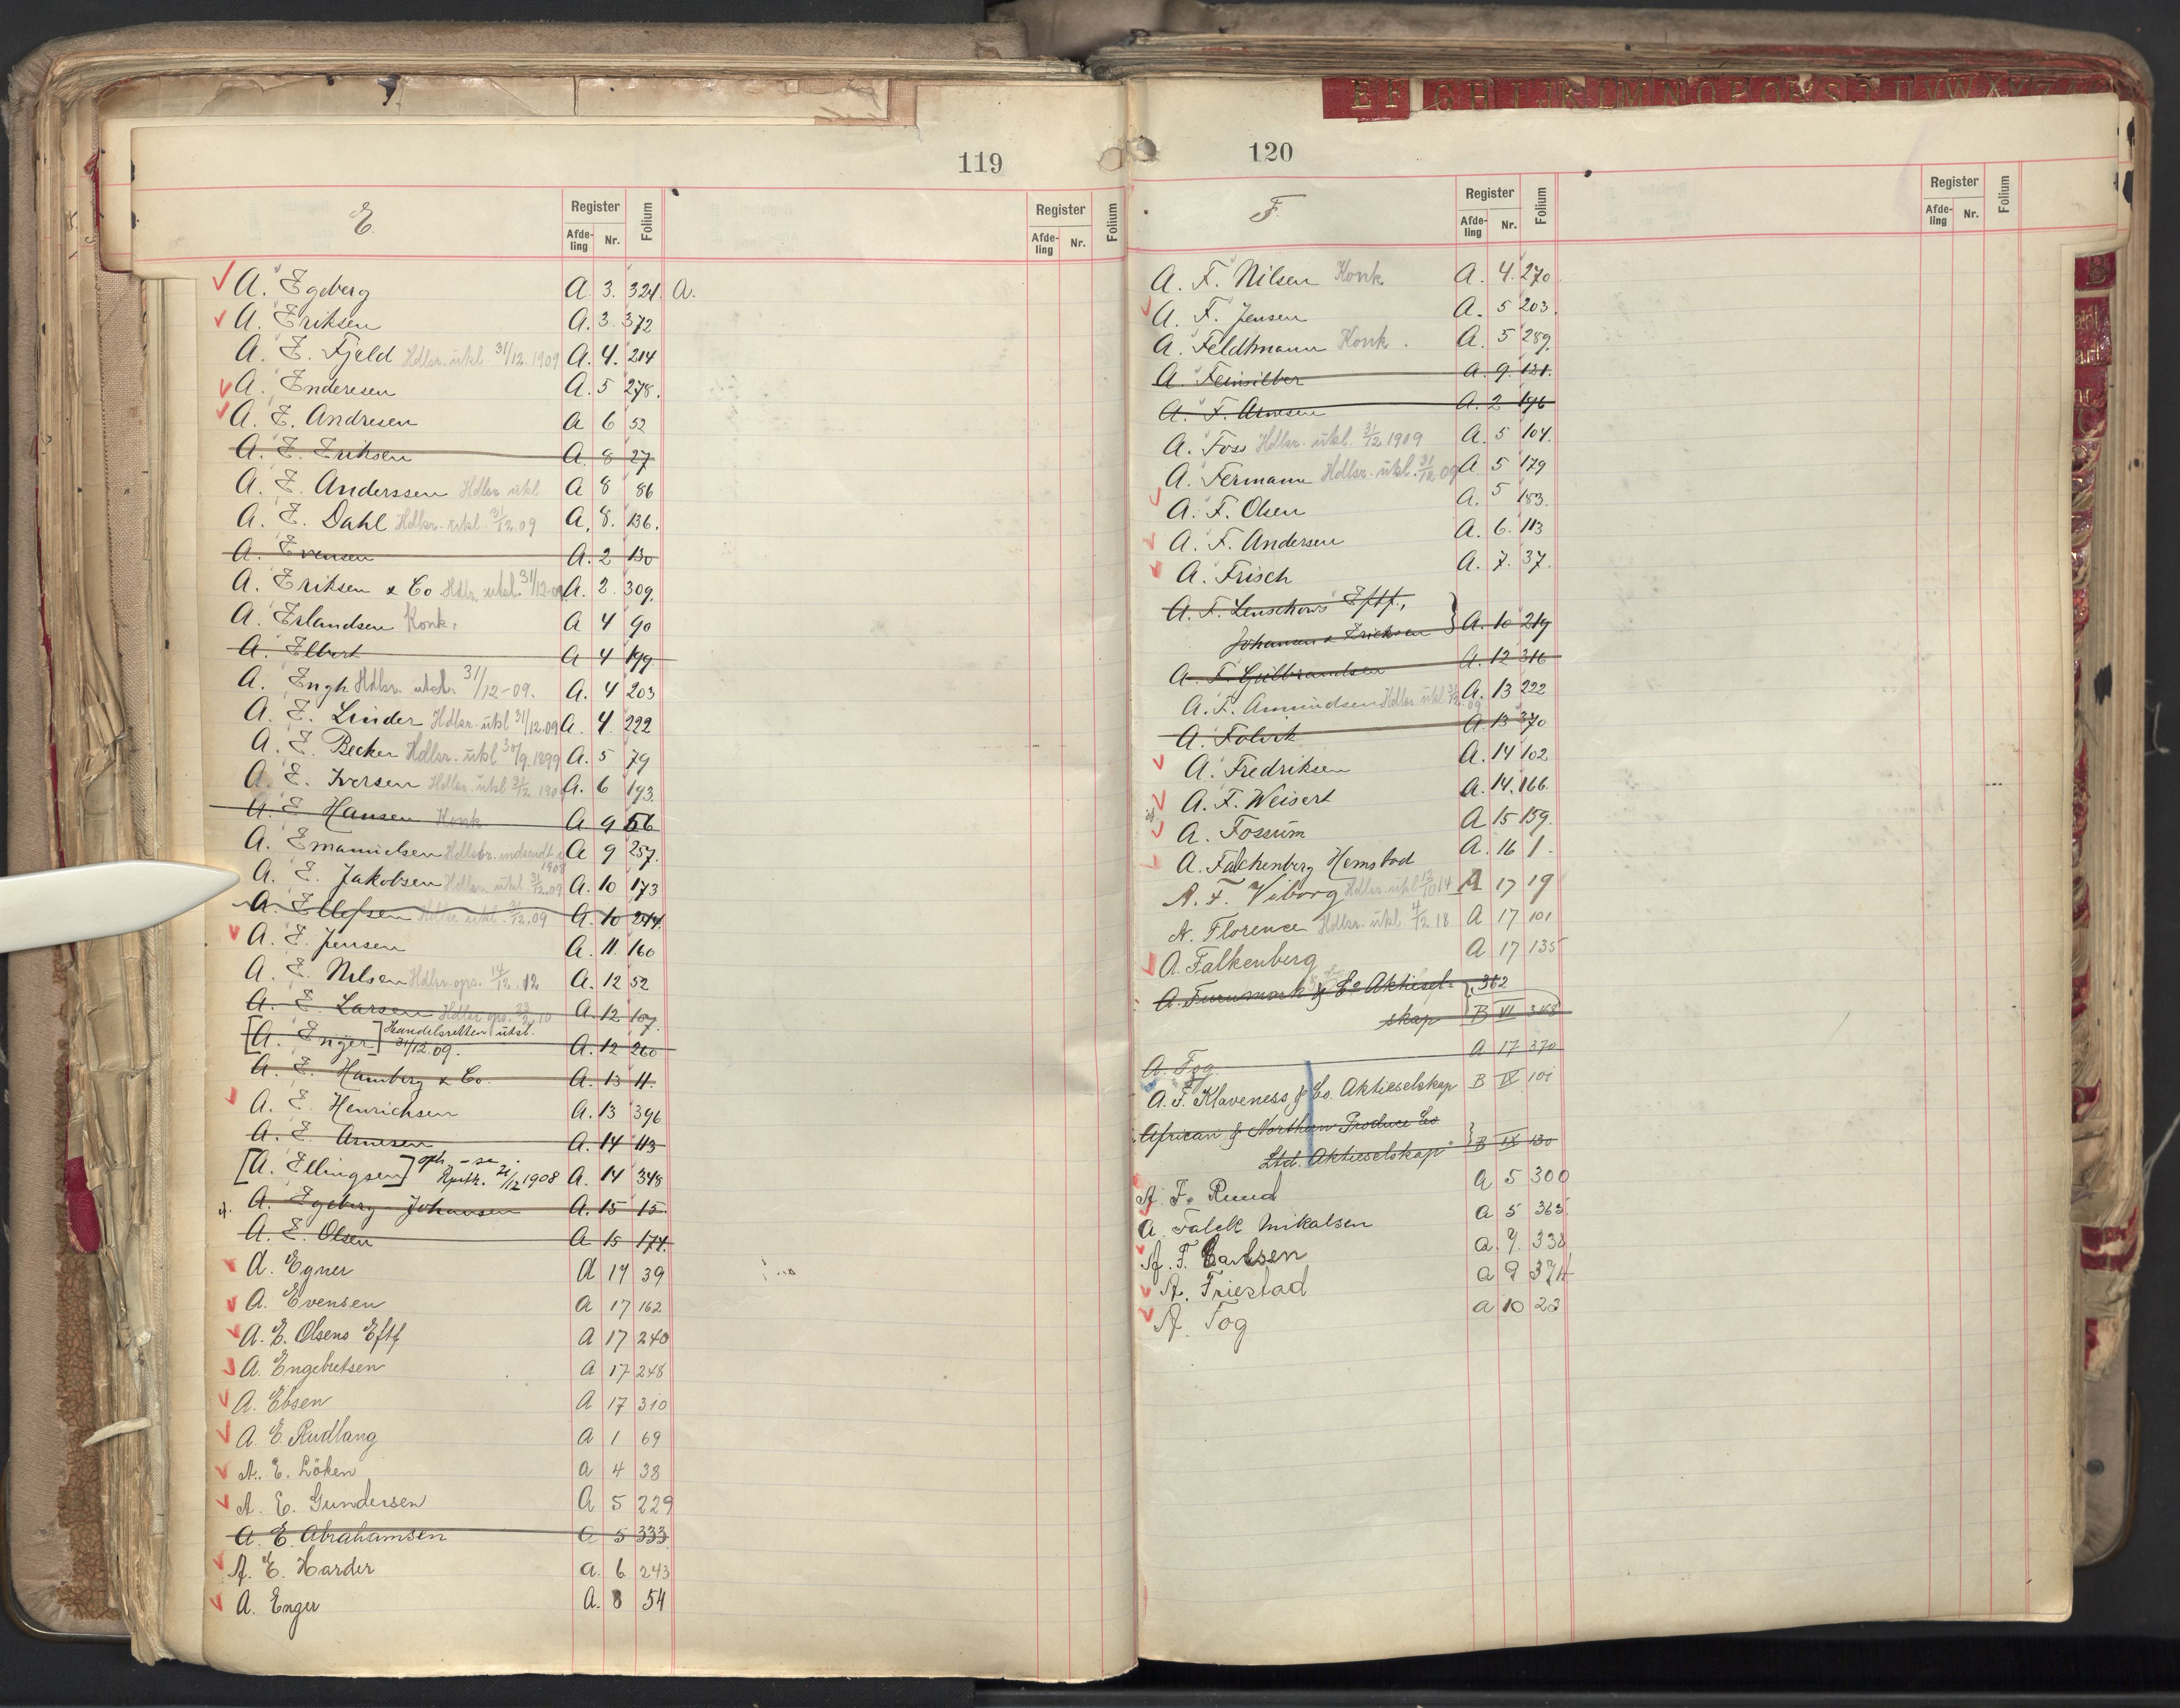 119
E.
Register
Afde-ling Nr. Folium
Register
Afde-ling Nr. Folium
A. Egeberg A. 3. 321. A.
A. Eriksen A. 3. 372
A. E. Fjeld Hdlsr. utsl. 31/12. 1909 A. 4. 214
A. Enderesen A. 5 278.
A. E. Andresen A 6 52
A. E. Eriksen A. 8 27
A. E. Anderssen Hdlsr utsl A 8 86
A. E. Dahl Hdlsr. utsl. 31/12.09 A. 8. 136.
A. Evensen A. 2 130
A. Eriksen & Co Hdlsr. utsl. 31/12-09 A. 2. 309.
A. Erlandsen Konk. A 4 90
A. Elbert A 4 199
A. Engh Hdlsr. utsl. 31/12-09. A. 4 203
A. E. Linder Hdlsr. utsl 31/12.09 A. 4. 222
A. E. Becker Hdlsr. utsl 30/9.1899 A. 5 79
A. E. Iversen Hdlsr. utsl 31/12 1909 A. 6 193.
A. E Hansen Konk A 9 56
A. Emanuelsen Hdlsbr. indsendt 1908 A 9 257.
A. E. Jakobsen Hdlsr. utsl 31/12.09 A. 10 173
A. Ellefsen Hdlsr utsl. 31/12.09 A. 10 244.
A. E. Jensen A. 11. 160
A. E. Nilsen Hdlsr. ops. 14/12.12 A. 12 52
A. E. Larsen Hdlsr ops. 23/2 10 A. 12 107.
[A. Enger] Handelsretten utsl. 31/12.09. A. 12 260
A. E. Hamberg & Co. A. 13 11.
A. E. Henrichsen A. 13 396
A. E. Arnesen A. 14 113
[A. Ellingsen] 21/12 1908 A. 14 348
A. Egeberg-Johansen A. 15 15.
A. E. Olsen A 15 174.
A. Egner A 17 39
A. Evensen A 17 162
A. E. Olsens Eftf A 17 240
A. Engebretsen A 17 248
A. Ebsen A 17 310
A. E. Rudlang A 1 69
A. E. Löken A 4 38
A. E. Gundersen A 5 229
A. E. Abrahamsen A 5 333.
A. E. Harder A. 6 243
A. Enger A. 8 54
120
E F G H I J K L M N O P Q R S T U V W X Y Z
F.
Register
Afde-ling Nr. Folium
Register
Afde-ling Nr. Folium
A. F. Nilsen Konk A. 4. 270
A. F. Jensen A. 5 203.
A. Feldtmann Konk. A. 5 289.
A. Feinsilber A. 9. 121.
A. F. Arnesen A. 2 196
A. Foss Hdlsr. utsl. 31/12 1909 A. 5 104.
A. Fermann Hdlsr. utsl. 31/12.09 A 5 179
A. F. Olsen A. 5 183.
A. F. Andersen A. 6. 113
A. Frisch A. 7. 37.
A. F. Lenschows Eftf.,
Johansen & Ericksen } A. 10 219
A. F. Gulbrandsen A. 12 316
A. F. Amundsen Hdlsr utsl 31/12.09 A. 13 222
A. Falvik A. 13 370
A. Fredriksen A. 14 102
A. F. Weisert A. 14. 166.
A. Fossum A 15 159.
A. Falchenberg Hemstad A. 16 1.
A. F. Viborg Hdlsr. utsl 12/10 14 A 17 19
A. Florence Hdlsr. utsl. 4/12 18 A 17 101
A. Falkenberg A 17 135
A. Furumark & Co Aktiesel- 362
skap } B VI 358
A. Fog. A 17 370
A. F. Klaveness & Co. Aktieselskap B IX 101
African & Northern Produce Co
Ltd. Aktieselskap } B IX 130
A. F. Ruud A 5 300
A. Falck Mikalsen A 5 365.
A. F. Carlsen A. 7. 338
A. Friestad A 9 374
A. Fog A 10 23